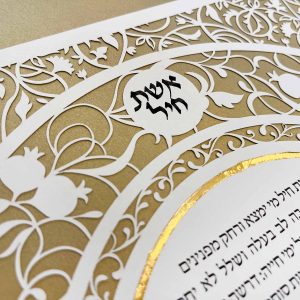 אשת
חיל
חיל מי מצא ורחק מפנינים
לב בעלה ושלל לא
ימי חייה: דרשה